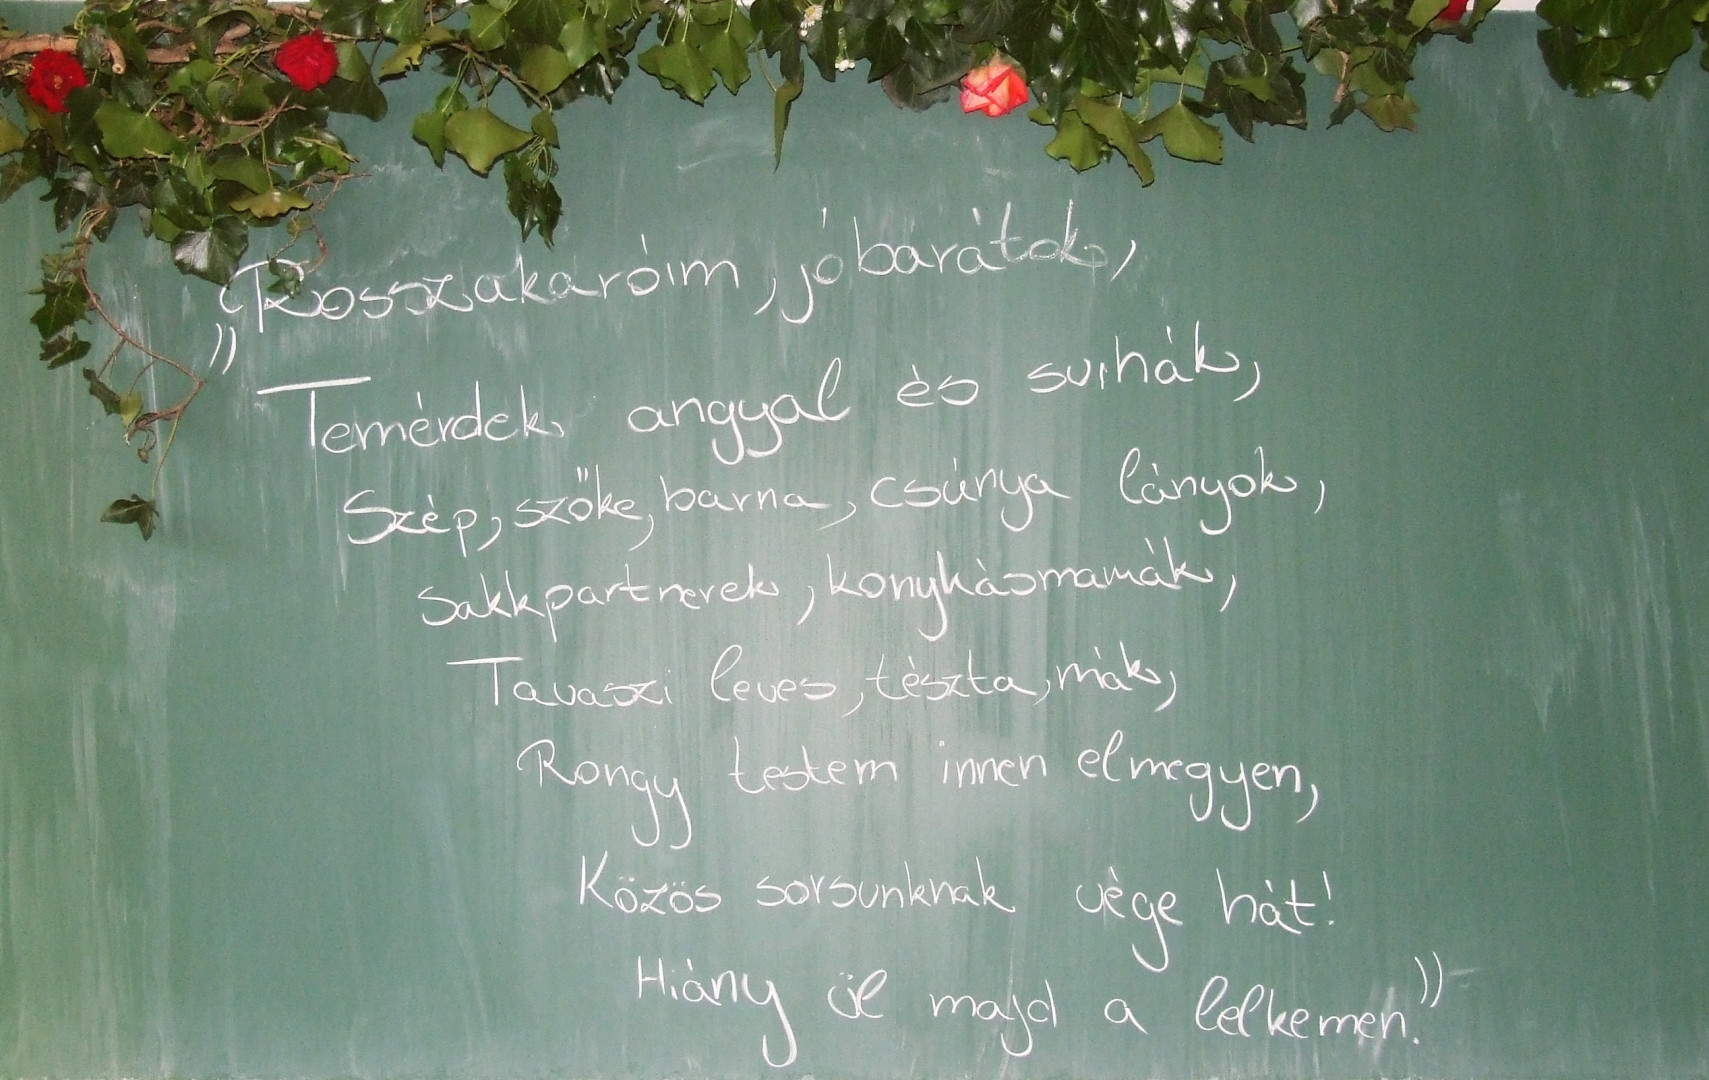 „Rosszakaróim, jóbarátok,
Temérdek angyal és svihák,
Szép, szőke, barna, csúnya lányok,
Sakkpartnerek, konyhásmamák,
Tavaszi leves, tészta, mák,
Rongy testem innen elmegyen,
Közös sorsunknak vége hát!
Hiány ül majd a lelkemen.”